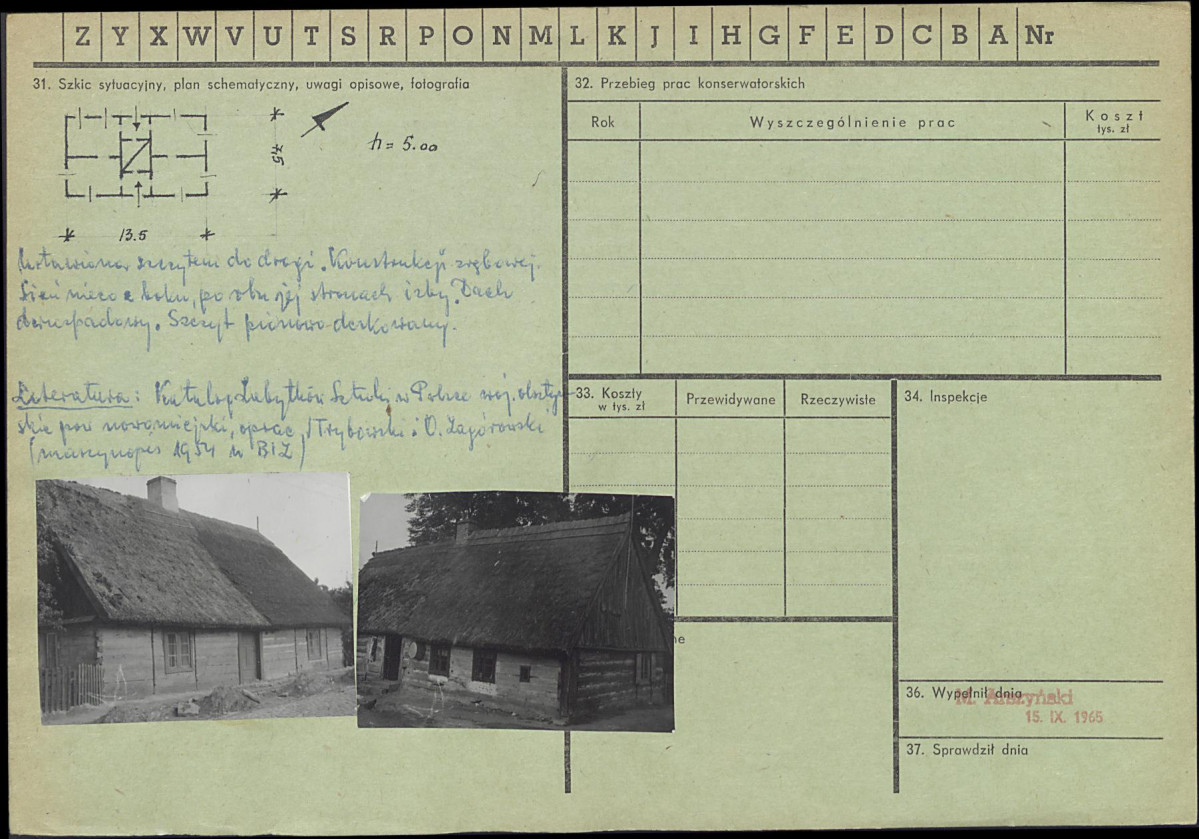 Z Y X W V U T S R P O N M L K J I H G F E D C B A Nr
31. Szkic sytuacyjny, plan schematyczny, uwagi opisowe, fotografia
7.5
h = 5.00
13.5
Ustawiona szczytem do drogi. Konstrukcji zrębowej.
Sień nieco z boku, po obu jej stronach izby. Dach
dwuspadowy. Szczyt pionowo deskowany.
Literatura: Katalog Zabytków Sztuki w Polsce woj. olsztyń-
skie pow nowomiejski, oprac. Trybowski i O. Zagórowski
(maszynopis 1954 w BIZ)
32. Przebieg prac konserwatorskich
Rok Wyszczególnienie prac Koszt
tys. zł
33. Koszty
w tys. zł
Przewidywane Rzeczywiste
34. Inspekcje
36. Wypełnił dnia
M. Arszyński
15. IX. 1965
37. Sprawdził dnia